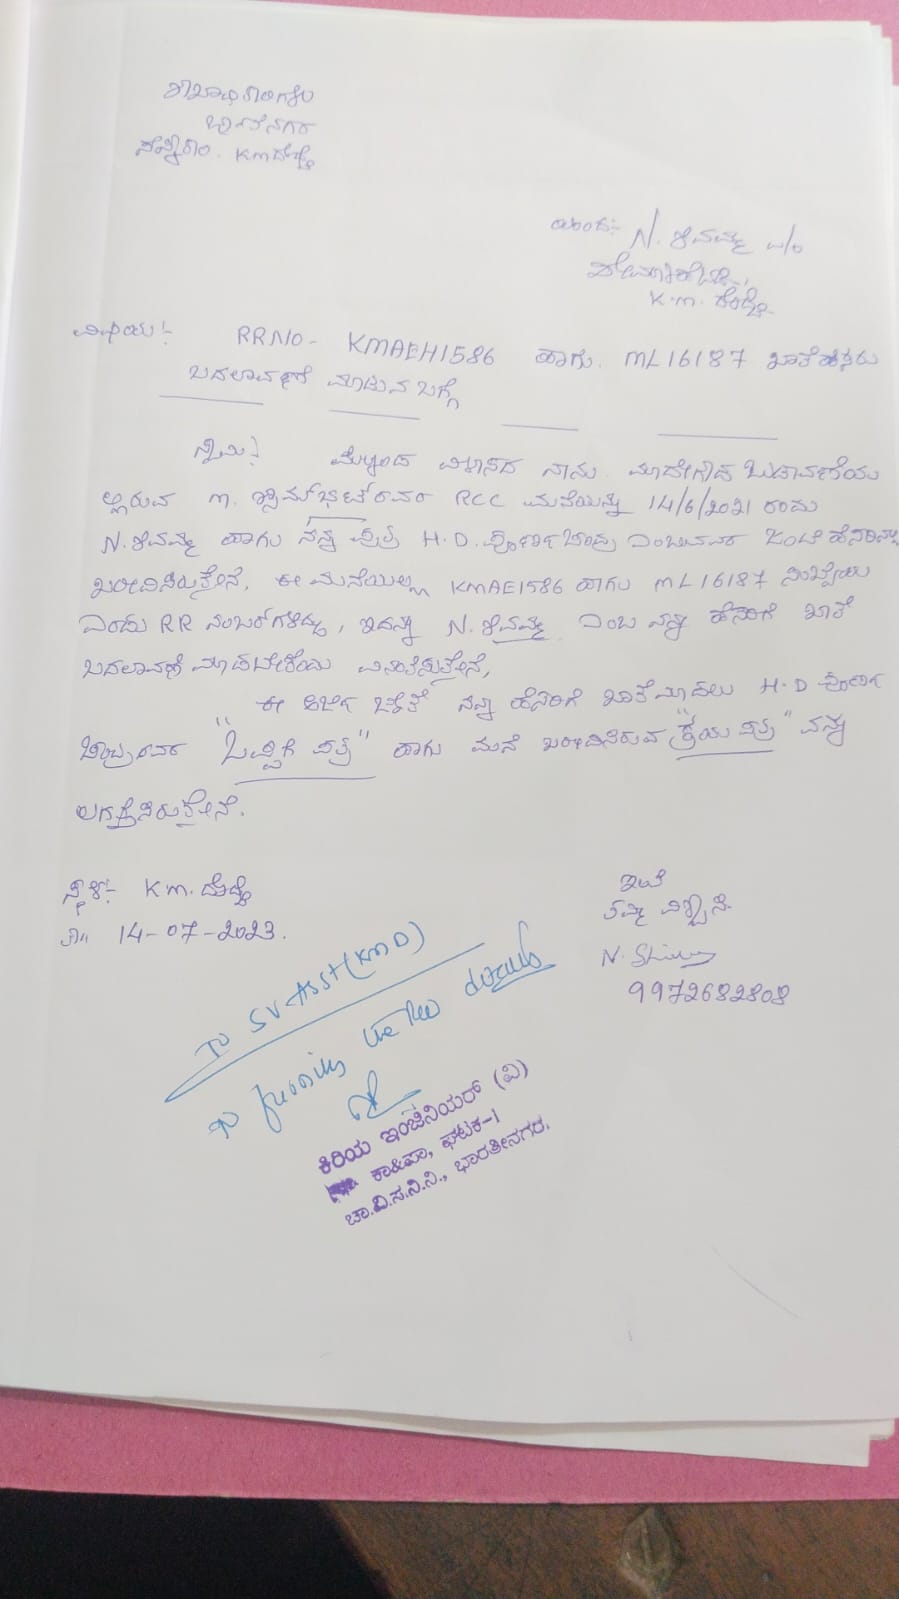 ಶಾಖಾಧಿಕಾರಿಗಳು
K.M. ದೊಡ್ಡಿ
ಯಿಂದ:- N. ಶಿವಮ್ಮ
K.M. ದೊಡ್ಡಿ
ವಿಷಯ:- RRNO- KMAEH1586 ಹಾಗು. ML16187 ಖಾತೆ ಹೆಸರು
ಬದಲಾವಣೆ ಮಾಡುವ ಬಗ್ಗೆ
ಮೇಲ್ಕಂಡ ವಿಳಾಸದ ನಾನು. ಮಾದೇಗೌಡ ಬಡಾವಣೆಯ
ಲ್ಲಿರುವ RCC ಮನೆಯನ್ನು 14/6/2021 ರಂದು
N. ಶಿವಮ್ಮ ಹಾಗು ನನ್ನ ಪುತ್ರ H.D. ಪೂರ್ಣಚಂದ್ರ ಎಂಬುವವರ ಜಂಟಿ ಹೆಸರಿನಲ್ಲಿ
ಖರೀದಿಸಿರುತ್ತೇನೆ. ಈ ಮನೆಯಲ್ಲಿ KMAE1586 ಹಾಗು ML16187 ಸಂಖ್ಯೆಯ
ಎರಡು RR ನಂಬರ್‌ಗಳಿದ್ದು, ಇದನ್ನು N. ಶಿವಮ್ಮ ಎಂಬ ನನ್ನ ಹೆಸರಿಗೆ ಖಾತೆ
ಬದಲಾವಣೆ ಮಾಡಬೇಕೆಂದು ವಿನಂತಿಸುತ್ತೇನೆ,
ಈ ಅರ್ಜಿ ಜೊತೆ ನನ್ನ ಹೆಸರಿಗೆ ಖಾತೆ ಮಾಡಲು H.D ಪೂರ್ಣ
ಚಂದ್ರರವರ "ಒಪ್ಪಿಗೆ ಪತ್ರ" ಹಾಗು ಮನೆ ಖರೀದಿಸಿರುವ "ಕ್ರಯ ಪತ್ರ" ವನ್ನು
ಲಗತ್ತಿಸಿರುತ್ತೇನೆ.
ಸ್ಥಳ:- K.M. ದೊಡ್ಡಿ
ದಿ॥ 14-07-2023.
ಇತಿ
ತಮ್ಮ ವಿಶ್ವಾಸಿ
9972682808
To SV-Asst (KMD)
To furnish the details
ಕಿರಿಯ ಇಂಜಿನಿಯರ್ (ವಿ)
ಕಾ&ಪಾ, ಘಟಕ-1
ಚಾ.ವಿ.ಸ.ನಿ.ನಿ., ಭಾರತೀನಗರ.